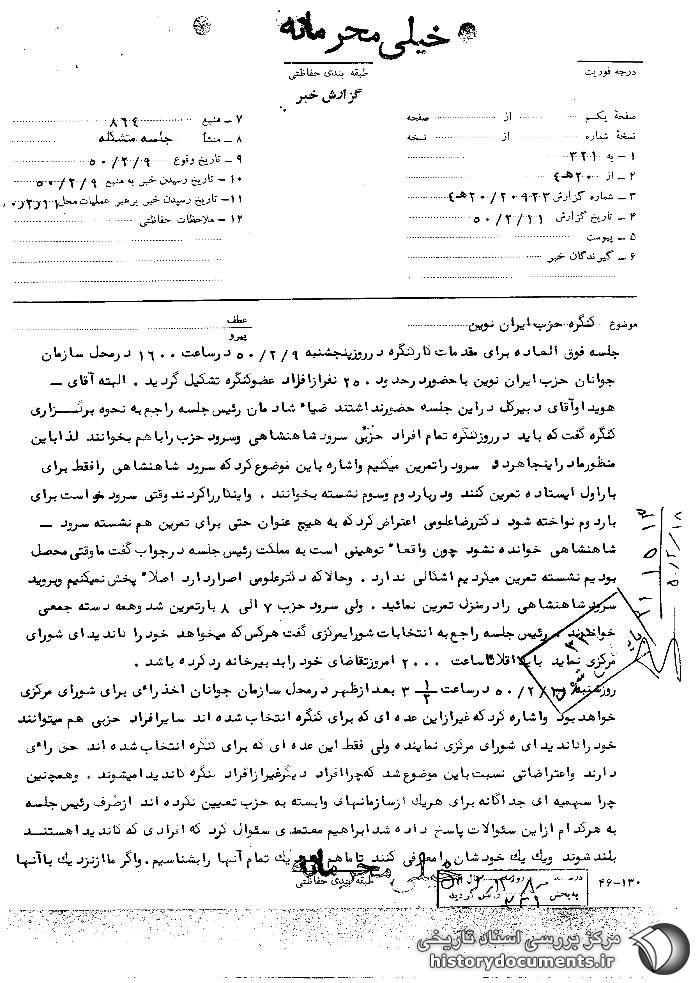 خیلی محرمانه
درجه فوریت
طبقه بندی حفاظتی
گزارش خبر
صفحهٔ یکم از صفحه
نسخهٔ شماره از نسخه
۱ – به ۳۲۱
۲ – از ۲۰هـ۴
۳ – شماره گزارش ۲۰/۲۰۹۲۳هـ۴
۴ – تاریخ گزارش ۵۰/۲/۱۱
۵ – پیوست
۶ – گیرندگان خبر
۷ – منبع ۸۶۴
۸ – منشأ جلسه متشکله
۹ – تاریخ وقوع ۵۰/۲/۹
۱۰ – تاریخ رسیدن خبر به منبع ۵۰/۲/۹
۱۱ – تاریخ رسیدن خبر برهبر عملیات محل
۱۲ – ملاحظات حفاظتی
موضوع کنگره حزب ایران نوین
عطف
پیرو
جلسه فوق العاده برای مقدمات کارکنگره درروزپنجشنبه ۵۰/۲/۹ درساعت ۱۶۰۰ درمحل سازمان
جوانان حزب ایران نوین باحضورحدود ۲۵۰ نفرازافراد عضوکنگره تشکیل گردید . البته آقای –
هویدا وآقای دبیرکل دراین جلسه حضورنداشتند ضیاء شادمان رئیس جلسه راجع به نحوه برگــزاری
کنگره گفت که باید درروزکنگره تمام افراد حزبی سرود شاهنشاهی وسرود حزب راباهم بخوانند لذاباین
منظورمادراینجاهردو سرود راتمرین میکنیم واشاره باین موضوع کرد که سرود شاهنشاهی رافقط برای
باراول ایستاده تمرین کنند ودرباردوم وسوم نشسته بخوانند . واینکارراکردند وقتی سرود خواست برای
باردوم نواخته شود دکتررضاعلومی اعتراض کرد که به هیچ عنوان حتی برای تمرین هم نشسته سرود –
شاهنشاهی خوانده نشود چون واقعاً توهینی است به مملکت رئیس جلسه درجواب گفت ماوقتی محصل
بودیم نشسته تمرین میکردیم اشکالی ندارد . وحالا که دکترعلومی اصراردارد اصلاً پخش نمیکنیم وبروید
سرود شاهنشاهی رادرمنزل تمرین نمائید . ولی سرود حزب ۷ الی ۸ بارتمرین شد وهمه دسته جمعی
خواندند . رئیس جلسه راجع به انتخابات شورایمرکزی گفت هرکس که میخواهد خود را کاندیدای شورای
مرکزی نماید باید اقلاً تاساعت ۲۰۰۰ امروزتقاضای خودرابدبیرخانه رد کرده باشد .
روزشنبه ۵۰/۲/ درساعت ۳ ۱/۲ بعد ازظهر درمحل سازمان جوانان اخذ رأی برای شورای مرکزی
خواهد بود واشاره کرد که غیرازاین عده ای که برای کنگره انتخاب شده اند سایرافراد حزبی هم میتوانند
خود راکاندیدای شورای مرکزی نماینده ولی فقط این عده ای که برای کنگره انتخاب شده اند حق رأی
دارند واعتراضاتی نسبت باین موضوع شد که چراافراد دیگرغیرازافراد کنگره کاندیدا میشوند . وهمچنین
چرا سهمیه ای جداگانه برای هریک ازسازمانهای وابسته به حزب تعیین نکرده اند ازطرف رئیس جلسه
به هرکدام ازاین سئوالات پاسخ داده شد ابراهیم معتمدی سئوال کرد که افرادی که کاندیدا هستنــد
بلند شوند ویک یک خودشان رامعرفی کنند تاماهم یک تمام آنها رابشناسیم . واگر ماازنزدیک باآنها
خیلی محرمانه
طبقه بندی حفاظتی
۴۶-۱۳۰
مرکز بررسی اسناد تاریخی
historydocuments.ir